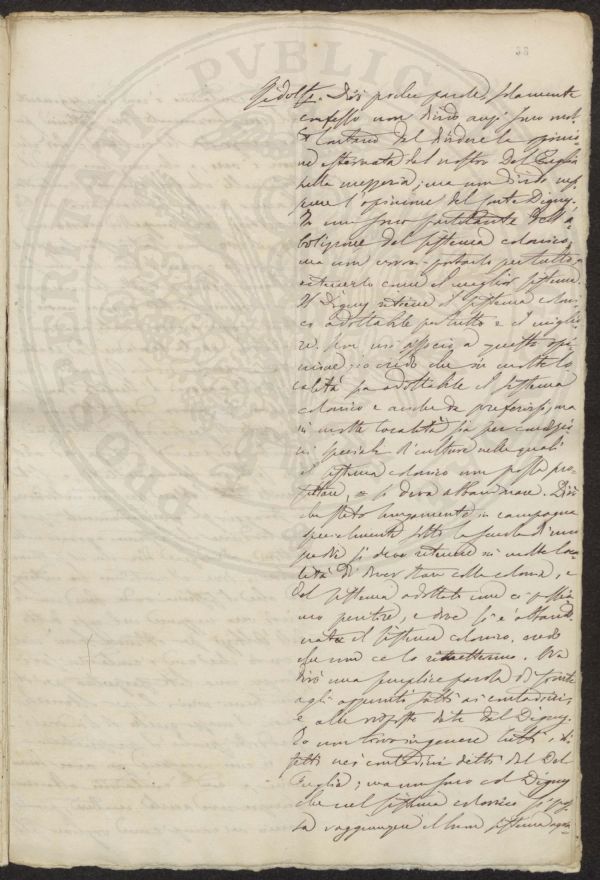 PVBLIC
PROSPERITATI
Ridolfi. Dirò poche parole, solamente
confesso non divido anzi sono mol
lontano dal dividere la opinio
ne esternata dal nostro Del Puglia
sulla mezzeria; ma non divido nep
pure l'opinione del Conte Digny.
Io non sono partitante dell'a-
bolizione del sistema colonico,
ma non vorrei portarlo per tutto, e
ritenerlo come il miglior sistema.
Il Digny ritiene il sistema coloni
co adottabile per tutto e il miglio
re. Io non mi associo a questa opi
nione; io credo che in molte lo
calità sia adottabile il sistema
colonico e anche da preferirsi, ma
in molte località sia per condizio
ni speciali di culture nelle quali
il sistema colonico non possa pro
fittare, si deva abbandonare. Dirò
che stato lungamente in campagna
specialmente sotto la scuola di mio
padre si deve ritenere in molte loca
lità di dover stare colla colonia, e
del sistema adottato non ci possia
mo pentire, e dove si è abbando
nato il sistema colonico, credo
che non ce lo rimetteremo. Ora
dirò una semplice parola di fronte
agli appunti fatti ai contadini,
e alle risposte date dal Digny.
Io non trovo in genere tutti i di
fetti nei contadini detti dal Del
Puglia; ma non sono col Digny
che nel sistema colonico si pos
sa raggiungere il buon sistema agra